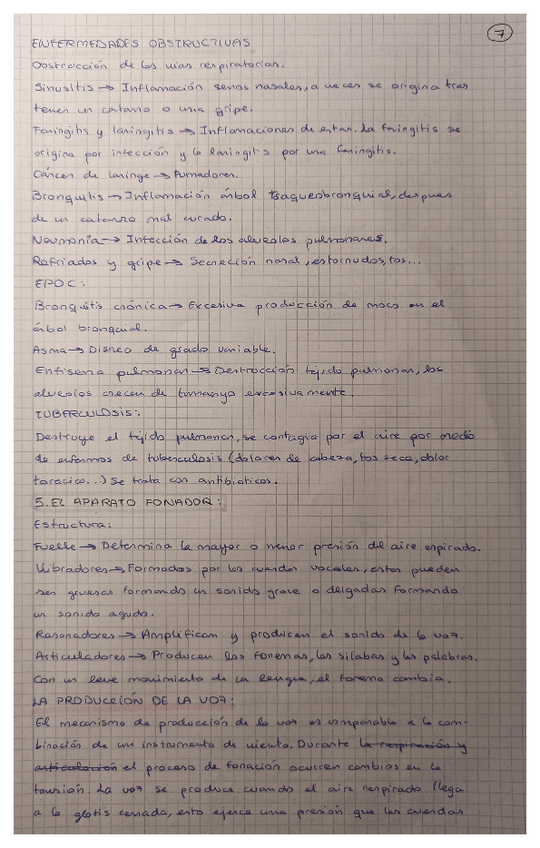 7
ENFERMEDADES OBSTRUCTIVAS
Obstrucción de las vías respiratorias.
Sinusitis → Inflamación senos nasales, a veces se origina tras
tener un catarro o una gripe.
Faringitis y laringitis → Inflamaciones de estar. La faringitis se
origina por infección y la laringitis por una faringitis.
Cáncer de laringe → Fumadores.
Bronquitis → Inflamación árbol traqueobronquial, despues
de un catarro mal curado.
Neumonía → Infección de los alveolos pulmonares.
Refriados y gripe → Secreción nasal, estornudos, tos...
EPOC:
Bronquitis crónica → Excesiva producción de moco en el
árbol bronquial.
Asma → Disnea de grado variable.
Enfisema pulmonar → Destrucción tejido pulmonar, los
alveolos crecen de tamanyo excesivamente.
TUBERCULOSIS:
Destruye el tejido pulmonar, se contagia por el aire por medio
de enfermos de tuberculosis (dolores de cabeza, tos seca, dolor
toracico...) Se trata con antibioticos.
5. EL APARATO FONADOR:
Estructura:
Fuelle → Determina la mayor o menor presión del aire espirado.
Vibradores → Formados por las cuerdas vocales, estas pueden
ser gruesas formando un sonido grave o delgadas formando
un sonido agudo.
Resonadores → Amplifican y producen el sonido de la voz.
Articuladores → Producen los fonemas, las silabas y las palabras.
Con un leve movimiento de la lengua, el fonema cambia.
LA PRODUCCIÓN DE LA VOZ:
El mecanismo de producción de la voz es comparable a la com-
binación de un instrumento de viento. Durante la respiración y
articulación el proceso de fonación ocurren cambios en la
tensión. La voz se produce cuando el aire respirado llega
a la glotis cerrada, esto ejerce una presión que las cuerdas